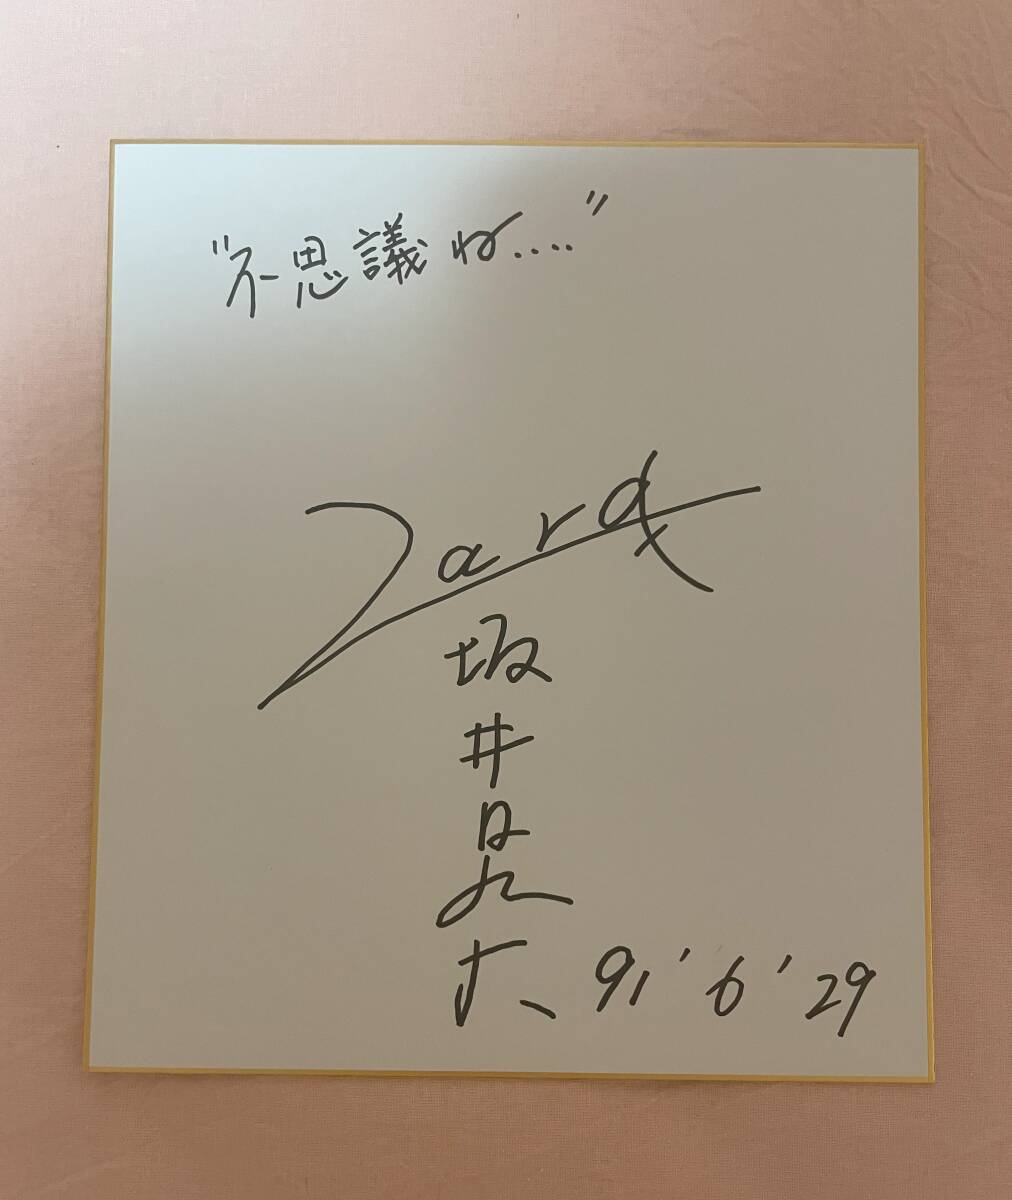 "不思議ね...."
Zard
坂井泉水
91'6'29